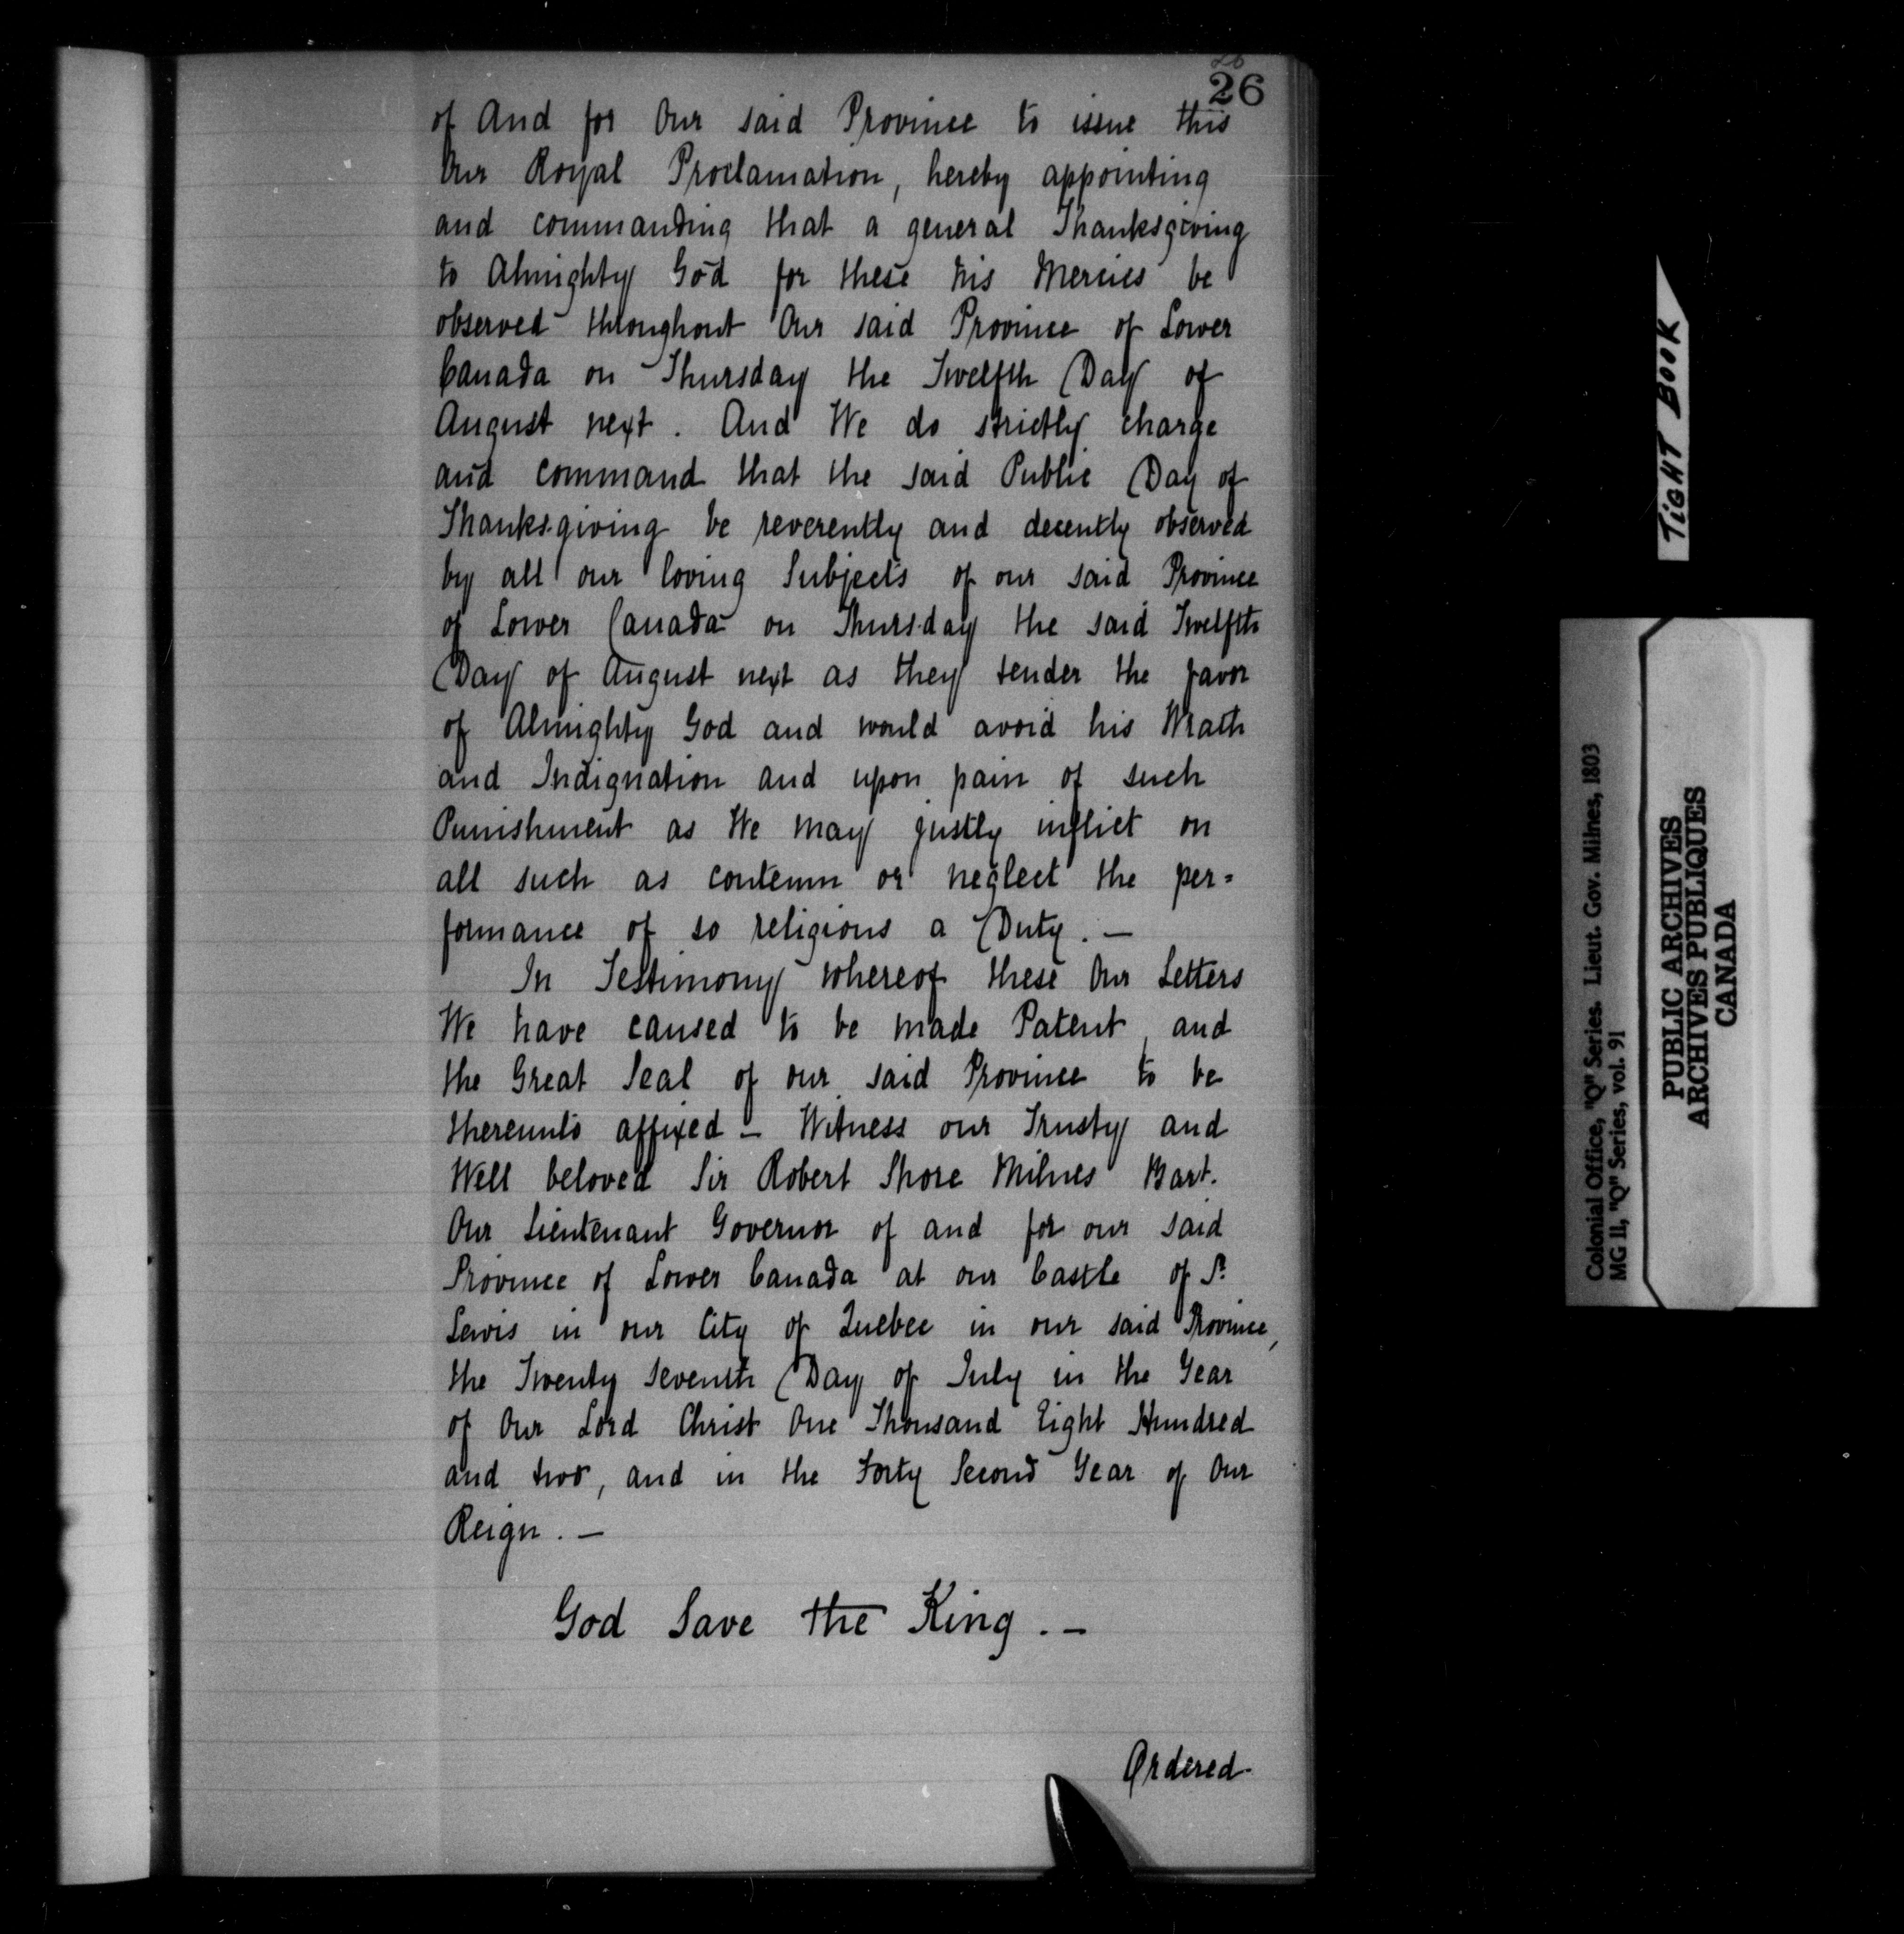 26
of And for Our said Province to issue this
Our Royal Proclamation, hereby appointing
and commanding that a general Thanksgiving
to Almighty God for these his Mercies be
observed throughout Our said Province of Lower
Canada on Thursday the Twelfth Day of
August next. And We do strictly charge
and command that the said Public Day of
Thanksgiving be reverently and decently observed
by all our loving Subjects of our said Province
of Lower Canada on Thursday the said Twelfth
Day of August next as they tender the favor
of Almighty God and would avoid his Wrath
and Indignation and upon pain of such
Punishment as We may justly inflict on
all such as contemn or neglect the per=
formance of so religious a Duty. —
In Testimony whereof these Our Letters
We have caused to be made Patent, and
the Great Seal of our said Province to be
thereunto affixed — Witness our Trusty and
Well beloved Sir Robert Shore Milnes Bart.
Our Lieutenant Governor of and for our said
Province of Lower Canada at our Castle of St
Lewis in our City of Quebec in our said Province,
the Twenty Seventh Day of July in the Year
of Our Lord Christ One Thousand Eight Hundred
and two, and in the Forty Second Year of Our
Reign. —
God Save the King. —
Ordered
TIGHT BOOK
Colonial Office, "Q" Series. Lieut. Gov. Milnes, 1803
MG 11, "Q" Series, vol. 91
PUBLIC ARCHIVES
ARCHIVES PUBLIQUES
CANADA